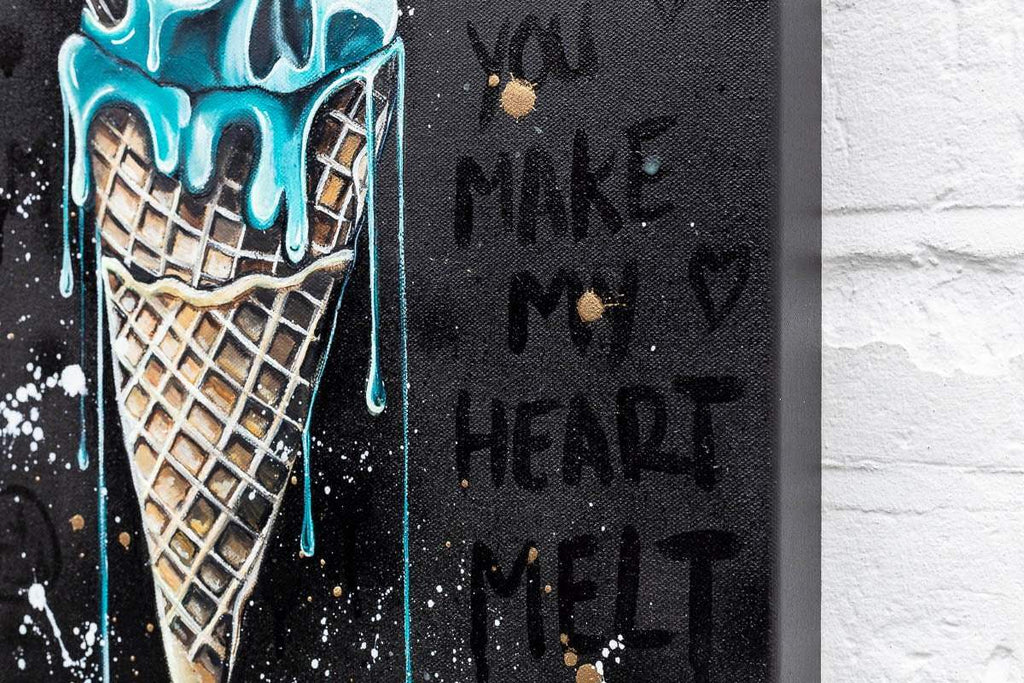 YOU
MAKE
MY
HEART
MELT